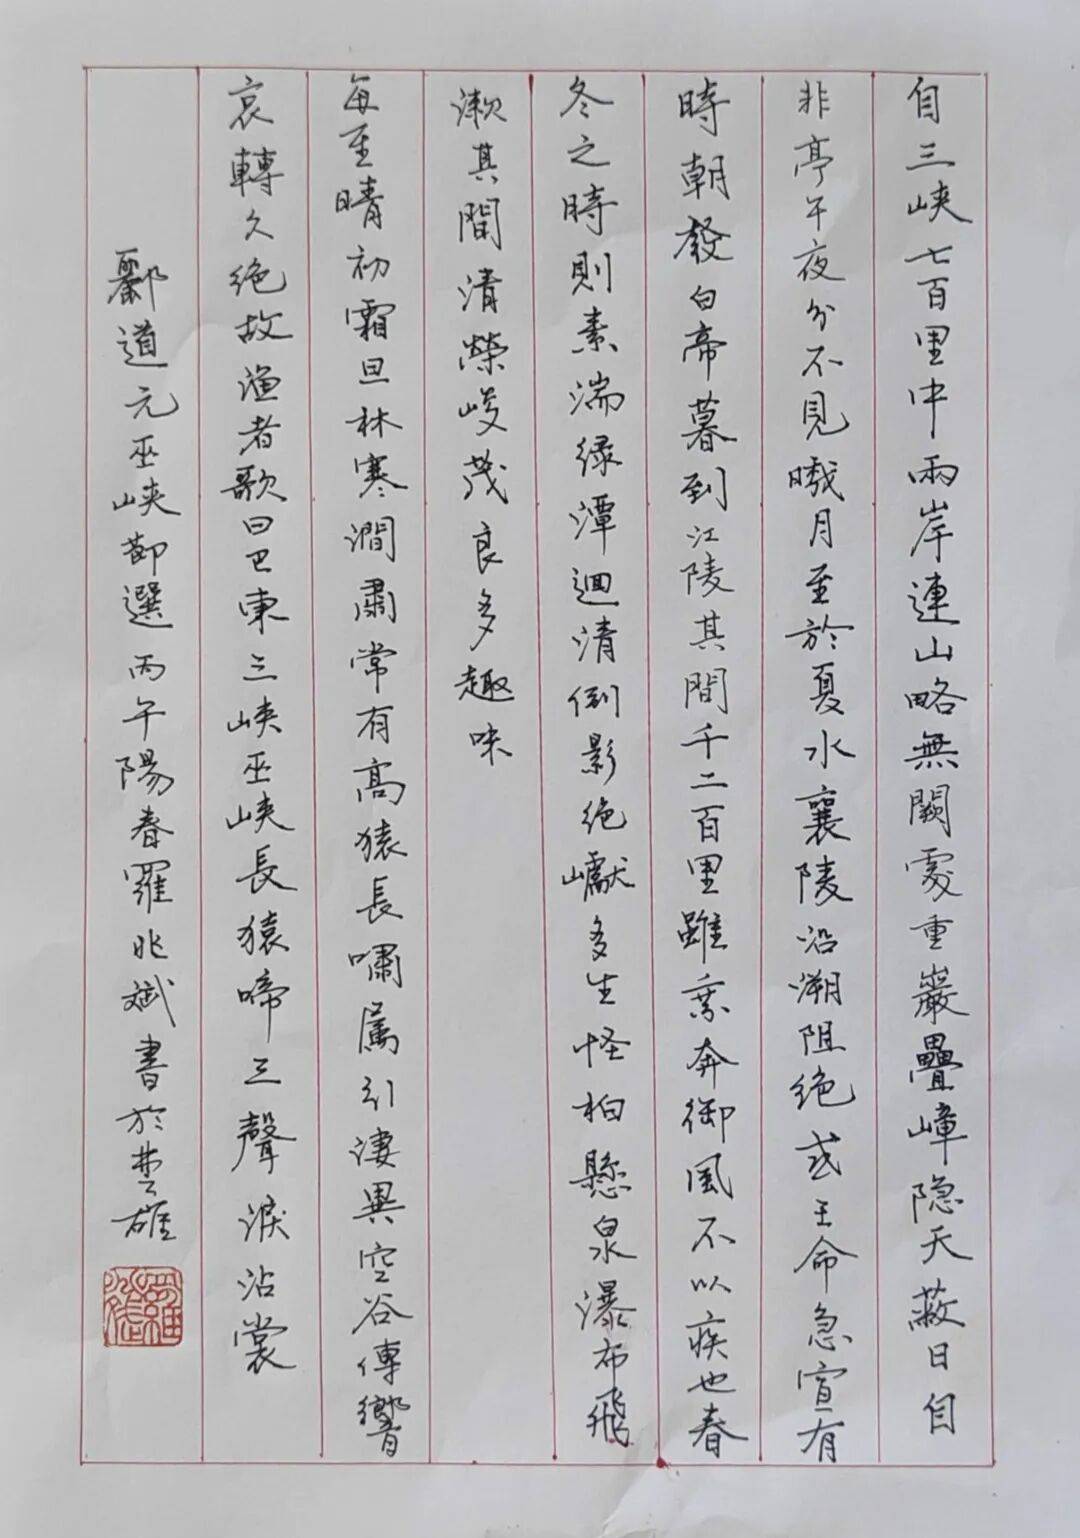 自三峡七百里中兩岸連山略無闕處重巖疊嶂隐天蔽日自
非亭午夜分不見曦月至於夏水襄陵沿溯阻绝或王命急宣有
時朝發白帝暮到江陵其間千二百里雖乘奔御風不以疾也春
冬之時則素湍绿潭迴清倒影绝巘多生怪柏懸泉瀑布飛
漱其間清榮峻茂良多趣味
每至晴初霜旦林寒澗肅常有高猿長嘯属引淒異空谷傳響
哀轉久绝故渔者歌曰巴東三峡巫峡長猿啼三聲淚沾裳
酈道元巫峡節選丙午陽春羅兆斌書於楚雄